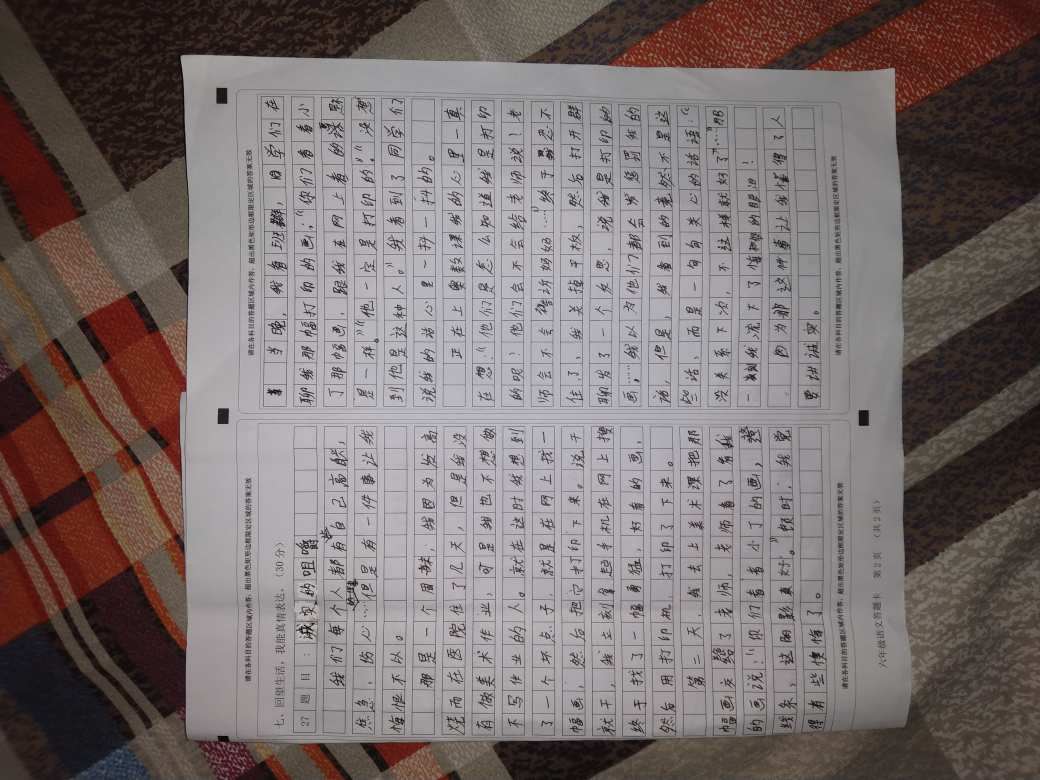 请在各科目的答题区域内作答，超出黑色矩形边框限定区域的答案无效
七、回望生活，我能真情表达。（30分）
27 题目：诚实的咀嚼
我们每个人都有自己高兴，
焦急、伤心……但是有一件事让我
悔恨不以。
那是一个周末，我因为发高
烧而在医院住了几天，但是我没
有做美术作业，可是我也不想做
不写作业的人。就在这时我想到
了一个坏点子，就是在网上找一
幅画，然后把它打印下来。说干
就干，我立刻拿起手机在网上搜
终于找了一幅勇猛，好看的画，
然后用打印机，打印了下来。
第二天，我去上美术课把那
幅画交给了老师，老师看了看我
的画说：“你们看看小丁的画，
线条，这阴影真好。”顿时，我觉
得有一些懊悔了。
请在各科目的答题区域内作答，超出黑色矩形边框限定区域的答案无效
六年级语文答题卡 第2页 （共2页）
请在各科目的答题区域内作答，超出黑色矩形边框限定区域的答案无效
当晚，我看班群，同学们在
聊我那幅打印的画；“你们看看小
丁那幅画，跟我在网上看的
是一样。”“他一定是打印的。”“没想
到他是这种人。”我看到了同学们
说我的话心里一抖一抖的。
正在上奥数课我的心里一真
在想：“他们是怎么知道我是打印
的呢？他们会不会给老师说？老
师会不会告诉妈妈……终于忍不
住了，我关掉平板，然后打开群
聊发了一个反思，说我是打印的
画……我以为他们都会发惩罚我的
话，但是，我看到的竟然不是这
些话，而是一句句关心的话语：“
没关系下次，不这样就好了……”那
一刻我流下了悔恨的眼泪！
因为那这件事让我懂得了人
要讲诚实。
请在各科目的答题区域内作答，超出黑色矩形边框限定区域的答案无效